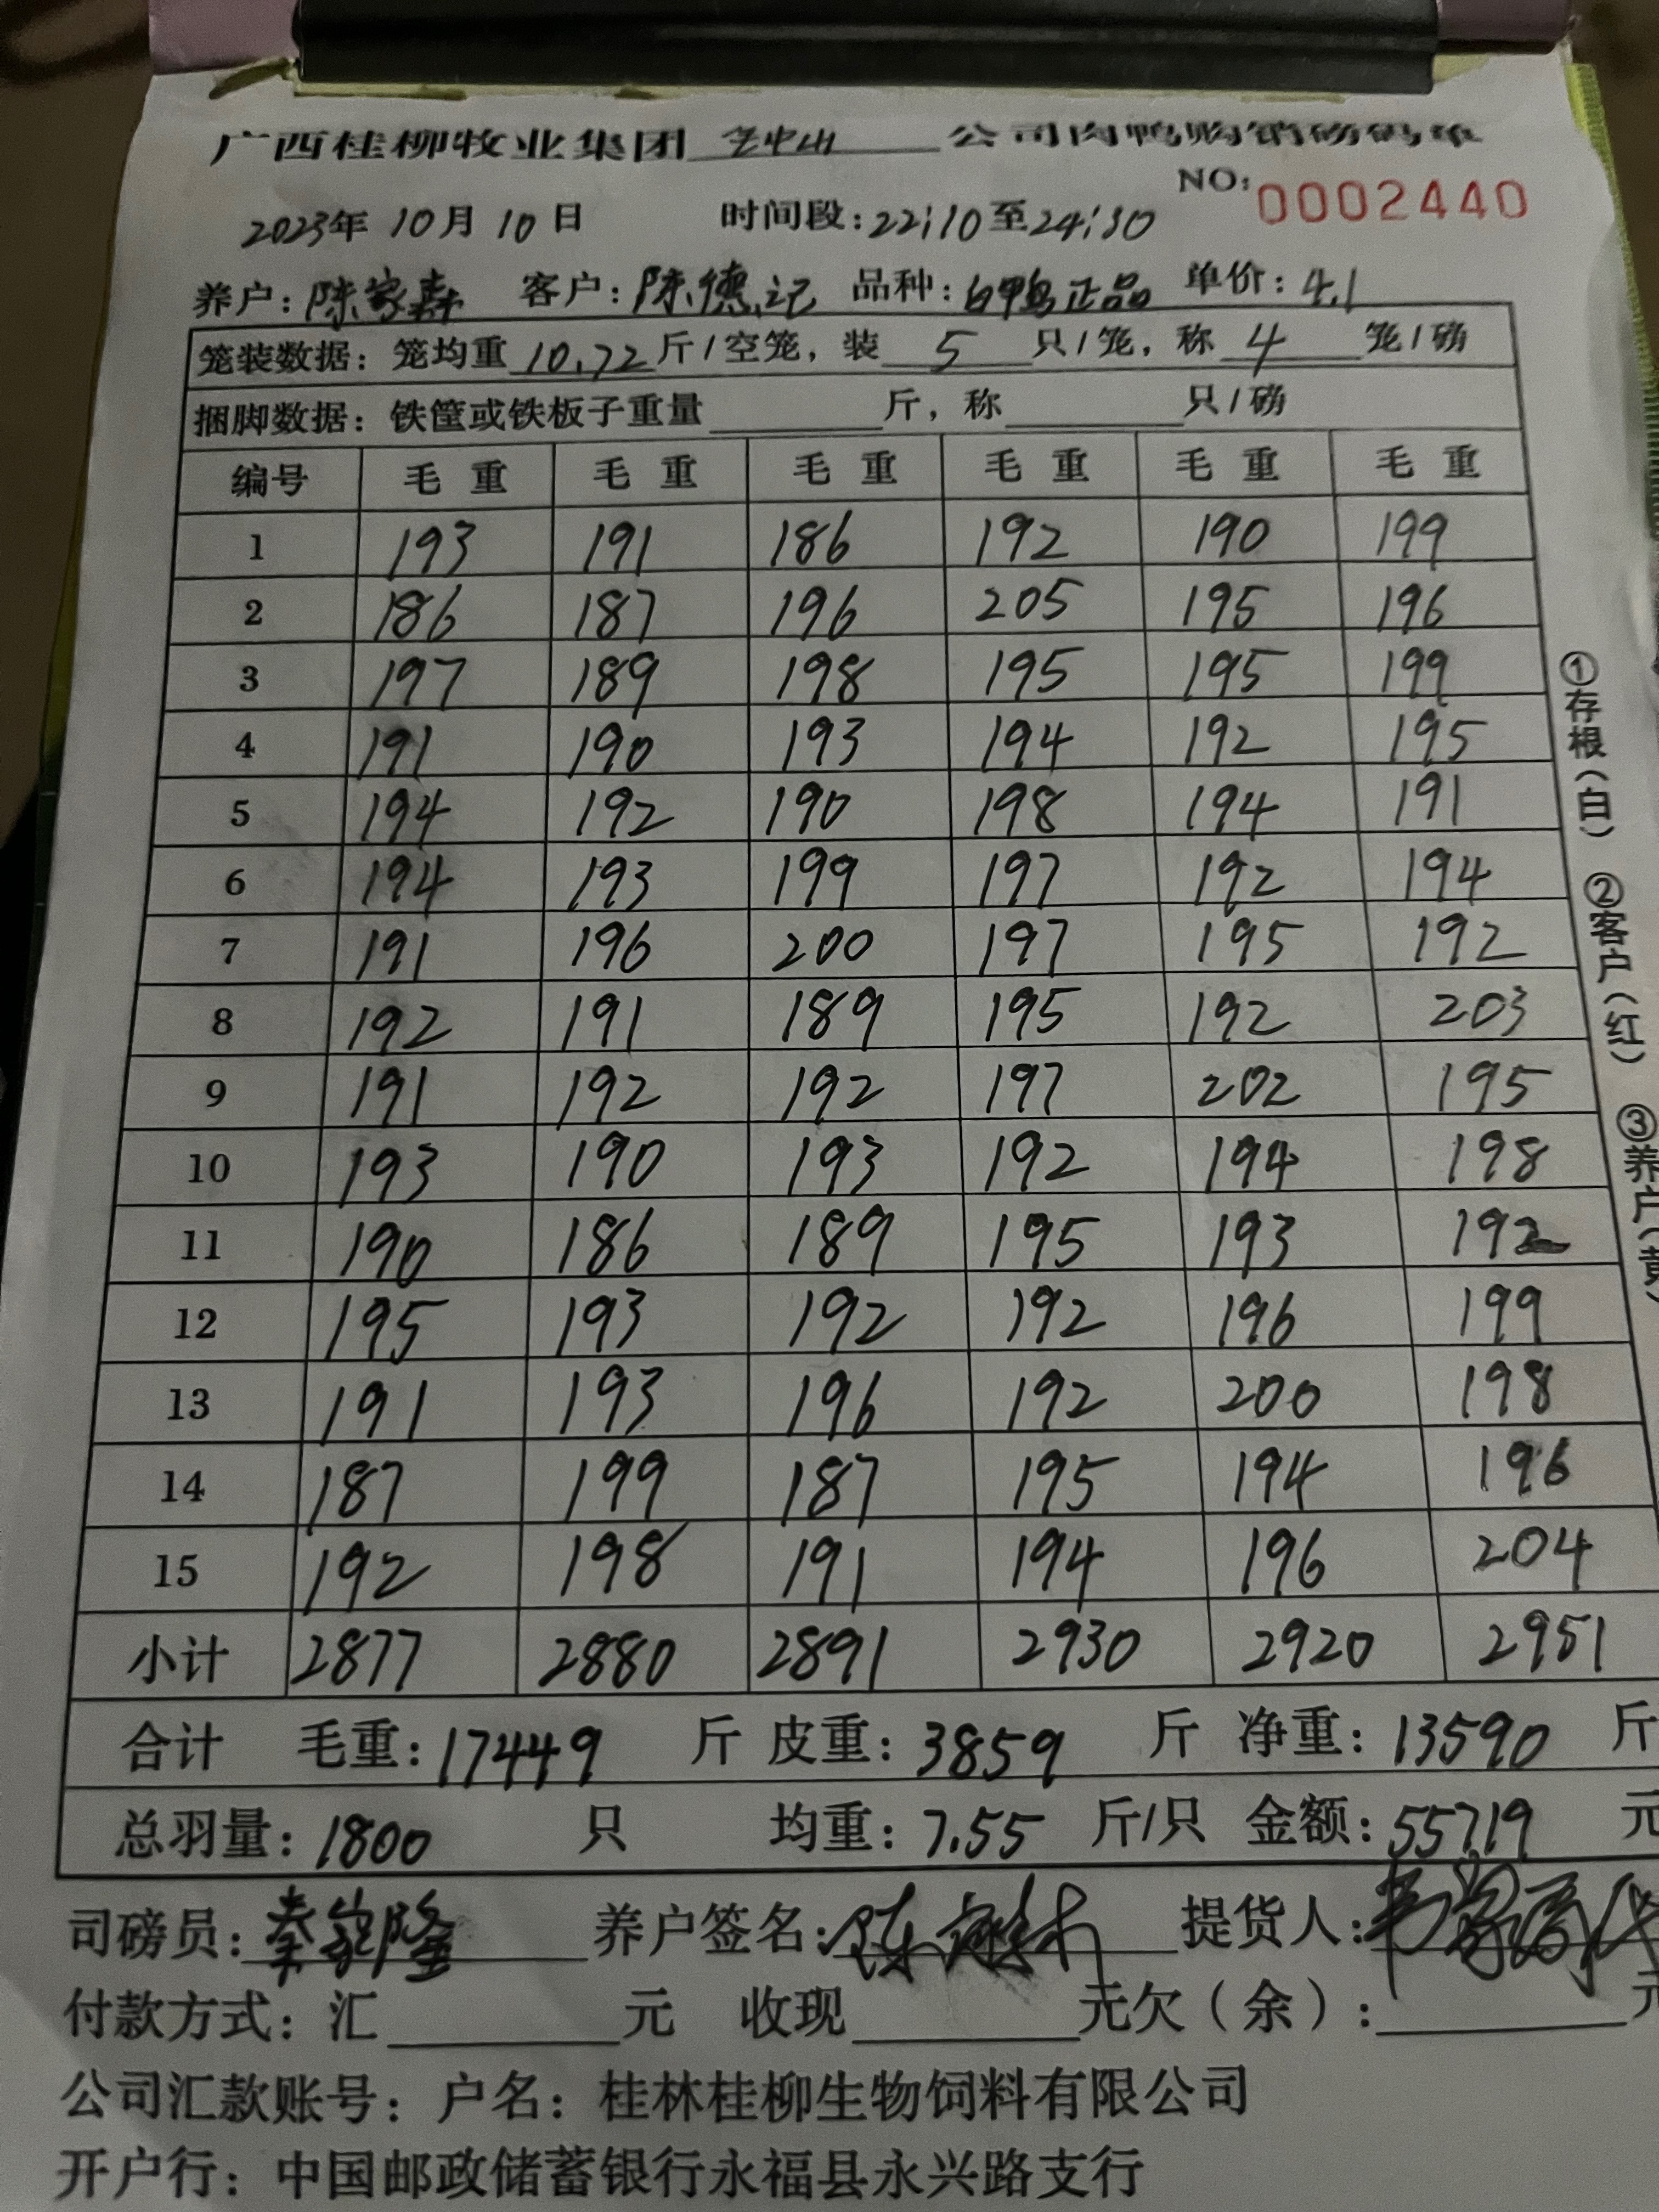 广西桂柳牧业集团 公司肉鸭购销磅码单
NO: 0002440
2023年 10月 10日 时间段:22:10至24:30
养户:陈家森 客户:陈德记 品种:白鸭正品 单价:4.1
笼装数据:笼均重 10.72 斤/空笼,装 5 只/笼,称 4 笼/磅
捆脚数据:铁筐或铁板子重量 斤,称 只/磅
编号 毛重 毛重 毛重 毛重 毛重 毛重
1 193 191 186 192 190 199
2 186 187 196 205 195 196
3 197 189 198 195 195 199
4 191 190 193 194 192 195
5 194 192 190 198 194 191
6 194 193 199 197 192 194
7 191 196 200 197 195 192
8 192 191 189 195 192 203
9 191 192 192 197 202 195
10 193 190 193 192 194 198
11 190 186 189 195 193 192
12 195 193 192 192 196 199
13 191 193 196 192 200 198
14 187 199 187 195 194 196
15 192 198 191 194 196 204
小计 2877 2880 2891 2930 2920 2951
合计 毛重:17449 斤 皮重:3859 斤 净重:13590 斤
总羽量:1800 只 均重:7.55 斤/只 金额:55719 元
司磅员:秦家隆 养户签名: 提货人:
付款方式:汇 元 收现 元欠(余): 元
公司汇款账号:户名:桂林桂柳生物饲料有限公司
开户行:中国邮政储蓄银行永福县永兴路支行
①存根(白) ②客户(红) ③养户(黄)